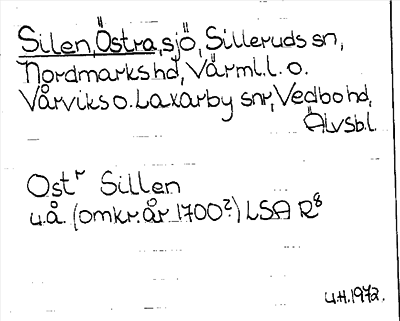 Silen, Östra, sjö, Silleruds sn,
Nordmarks hd, Värml. l. o.
Vårviks o. Laxarby snr, Vedbo hd,
Älvsb. l.
Ostr Sillen
u.å. (omkr. år 1700?) LSA R8
U.H. 1972.